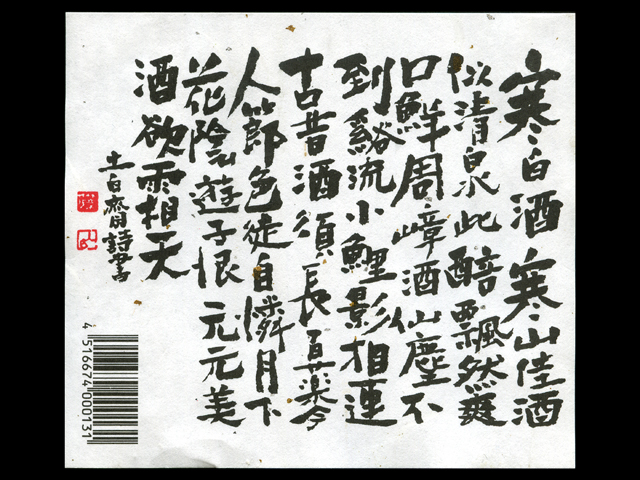 寒白酒 寒山佳酒
似清泉此醅飄然爽
口鮮周嶂酒仙塵不
到谿流小鯉影相連
古昔酒須長真薬今
人節色徒自憐月下
花陰遊子恨元元美
酒欲雨相天
土白齋詩書
4 516674 000131